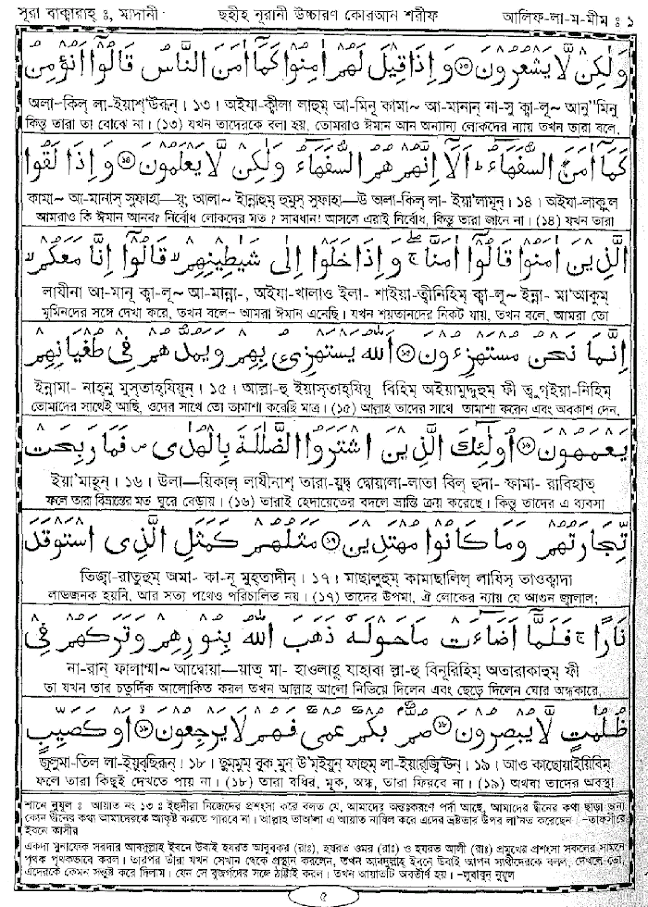 সূরা বাক্বারাহ্ ঃ, মাদানী ছহীহ নূরানী উচ্চারণ কোরআন শরীফ আলিফ-লা-ম-মীম ঃ ১
وَلٰكِنْ لَّا يَشْعُرُوْنَ ۝ وَ اِذَا قِيْلَ لَهُمْ اٰمِنُوْا كَمَاۤ اٰمَنَ النَّاسُ قَالُوْۤا اَنُؤْمِنُ
অলা-কিল্ লা-ইয়াশ্'উরূন্। ১৩। অইযা-ক্বীলা লাহুম্ আ-মিনূ কামা~ আ-মানান্ না-সু ক্বা-লূ~ আনু"মিনু
কিন্তু তারা তা বোঝে না। (১৩) যখন তাদেরকে বলা হয়, তোমরাও ঈমান আন অন্যান্য লোকদের ন্যায় তখন তারা বলে,
كَمَاۤ اٰمَنَ السُّفَهَآءُ ؕ اَلَاۤ اِنَّهُمْ هُمُ السُّفَهَآءُ وَلٰكِنْ لَّا يَعْلَمُوْنَ ۝ وَ اِذَا لَقُوا
কামা~ আ-মানাস্ সুফাহা—য়্; আলা~ ইন্নাহুম্ হুমুস্ সুফাহা—উ অলা-কিল্ লা- ইয়া'লামূন্। ১৪। অইযা-লাক্বুল
আমরাও কি ঈমান আনব? নির্বোধ লোকদের মত? সাবধান! আসলে এরাই নির্বোধ, কিন্তু তারা জানে না। (১৪) যখন তারা
الَّذِيْنَ اٰمَنُوْا قَالُوْۤا اٰمَنَّا ۚۖ وَ اِذَا خَلَوْا اِلٰى شَيٰطِيْنِهِمْ ۙ قَالُوْۤا اِنَّا مَعَكُمْ ۙ
লাযীনা আ-মানূ ক্বা-লূ~ আ-মান্না-, অইযা-খালাও ইলা- শাইয়া-ত্বীনিহিম্ ক্বা-লূ~ ইন্না- মা'আকুম্
মুমিনদের সঙ্গে দেখা করে, তখন বলে- আমরা ঈমান এনেছি। যখন শয়তানদের নিকট যায়, তখন বলে, আমরা তো
اِنَّمَا نَحْنُ مُسْتَهْزِءُوْنَ ۝ اَللّٰهُ يَسْتَهْزِئُ بِهِمْ وَيَمُدُّهُمْ فِيْ طُغْيَانِهِمْ
ইন্নামা- নাহ্নু মুস্তাহ্যিয়ূন্। ১৫। আল্লা-হু ইয়াস্তাহ্যিয়ূ বিহিম্ অইয়ামুদ্দুহুম্ ফী ত্বুগ্ইয়া-নিহিম্
তোমাদের সাথেই আছি, ওদের সাথে তো তামাশা করেছি মাত্র। (১৫) আল্লাহ তাদের সাথে তামাশা করেন এবং অবকাশ দেন,
يَعْمَهُوْنَ ۝ اُولٰٓئِكَ الَّذِيْنَ اشْتَرَوُا الضَّلٰلَةَ بِالْهُدٰى ۪ فَمَا رَبِحَتْ
ইয়া'মাহূন্। ১৬। উলা—য়িকাল্ লাযীনাশ্ তারা-য়ুদ্ব্ দ্বোয়ালা-লাতা বিল্ হুদা- ফামা- রাবিহাত্
ফলে তারা বিভ্রান্তের মত ঘুরে বেড়ায়। (১৬) তারাই হেদায়েতের বদলে ভ্রান্তি ক্রয় করেছে। কিন্তু তাদের এ ব্যবসা
تِّجَارَتُهُمْ وَمَا كَانُوْا مُهْتَدِيْنَ ۝ مَثَلُهُمْ كَمَثَلِ الَّذِي اسْتَوْقَدَ
তিজ্বা-রাতুহুম্ অমা- কা-নূ মুহ্তাদীন্। ১৭। মাছালুহুম্ কামাছালিল্ লাযিস্ তাওক্বাদা
লাভজনক হয়নি, আর সত্য পথেও পরিচালিত নয়। (১৭) তাদের উপমা, ঐ লোকের ন্যায় যে আগুন জ্বালাল;
نَارًا ۚ فَلَمَّاۤ اَضَآءَتْ مَا حَوْلَهٗ ذَهَبَ اللّٰهُ بِنُوْرِهِمْ وَتَرَكَهُمْ فِيْ
না-রান্ ফালাম্মা~ আদ্বোয়া—য়াত্ মা- হাওলাহূ যাহাবা ল্লা-হু বিনূরিহিম্ অতারাকাহুম্ ফী
তা যখন তার চতুর্দিক আলোকিত করল তখন আল্লাহ আলো নিভিয়ে দিলেন এবং ছেড়ে দিলেন ঘোর অন্ধকারে,
ظُلُمٰتٍ لَّا يُبْصِرُوْنَ ۝ صُمٌّۢ بُكْمٌ عُمْيٌ فَهُمْ لَا يَرْجِعُوْنَ ۝ اَوْ كَصَيِّبٍ
জুলুমা-তিল লা-ইয়ুবছিরূন্। ১৮। ছুম্মুম্ বুক্ মুন্ উ'ম্ইয়ুন্ ফাহুম্ লা-ইয়ারজ্বি'ঊন্। ১৯। আও কাছোয়াইয়িবিম্
ফলে তারা কিছুই দেখতে পায় না। (১৮) তারা বধির, মূক, অন্ধ, তারা ফিরবে না। (১৯) অথবা তাদের অবস্থা
শানে নুযূল ঃ আয়াত নং ১৩ ঃ ইহুদীরা নিজেদের প্রশংসা করে বলত যে, আমাদের অন্তঃকরণে পর্দা আছে, আমাদের দ্বীনের কথা ছাড়া অন্য
কোন দ্বীনের কথা আমাদেরকে আকৃষ্ট করতে পারবে না। আল্লাহ তাআ'লা এ আয়াত নাযিল করে এদের ভ্রষ্টতার উপর লা'নত করেছেন। –তাফসীরে
ইবনে কাসীর
একদা মুনাফেক সরদার আবদুল্লাহ ইবনে উবাই হযরত আবুবকর (রাঃ), হযরত ওমর (রাঃ) ও হযরত আলী (রাঃ) প্রমুখের প্রশংসা সকলের সামনে
পৃথক পৃথকভাবে করল। তারপর তাঁরা যখন সেখান থেকে প্রস্থান করলেন, তখন আবদুল্লাহ ইবনে উবাই আপন সাথীদেরকে বলল, দেখলে তো,
এদেরকে কেমন সন্তুষ্ট করে দিলাম। যেন সে বুজর্গদের সঙ্গে ঠাট্টাই করল। তখন আয়াতটি অবতীর্ণ হয়। –লুবাবুন্ নুযূল
৫